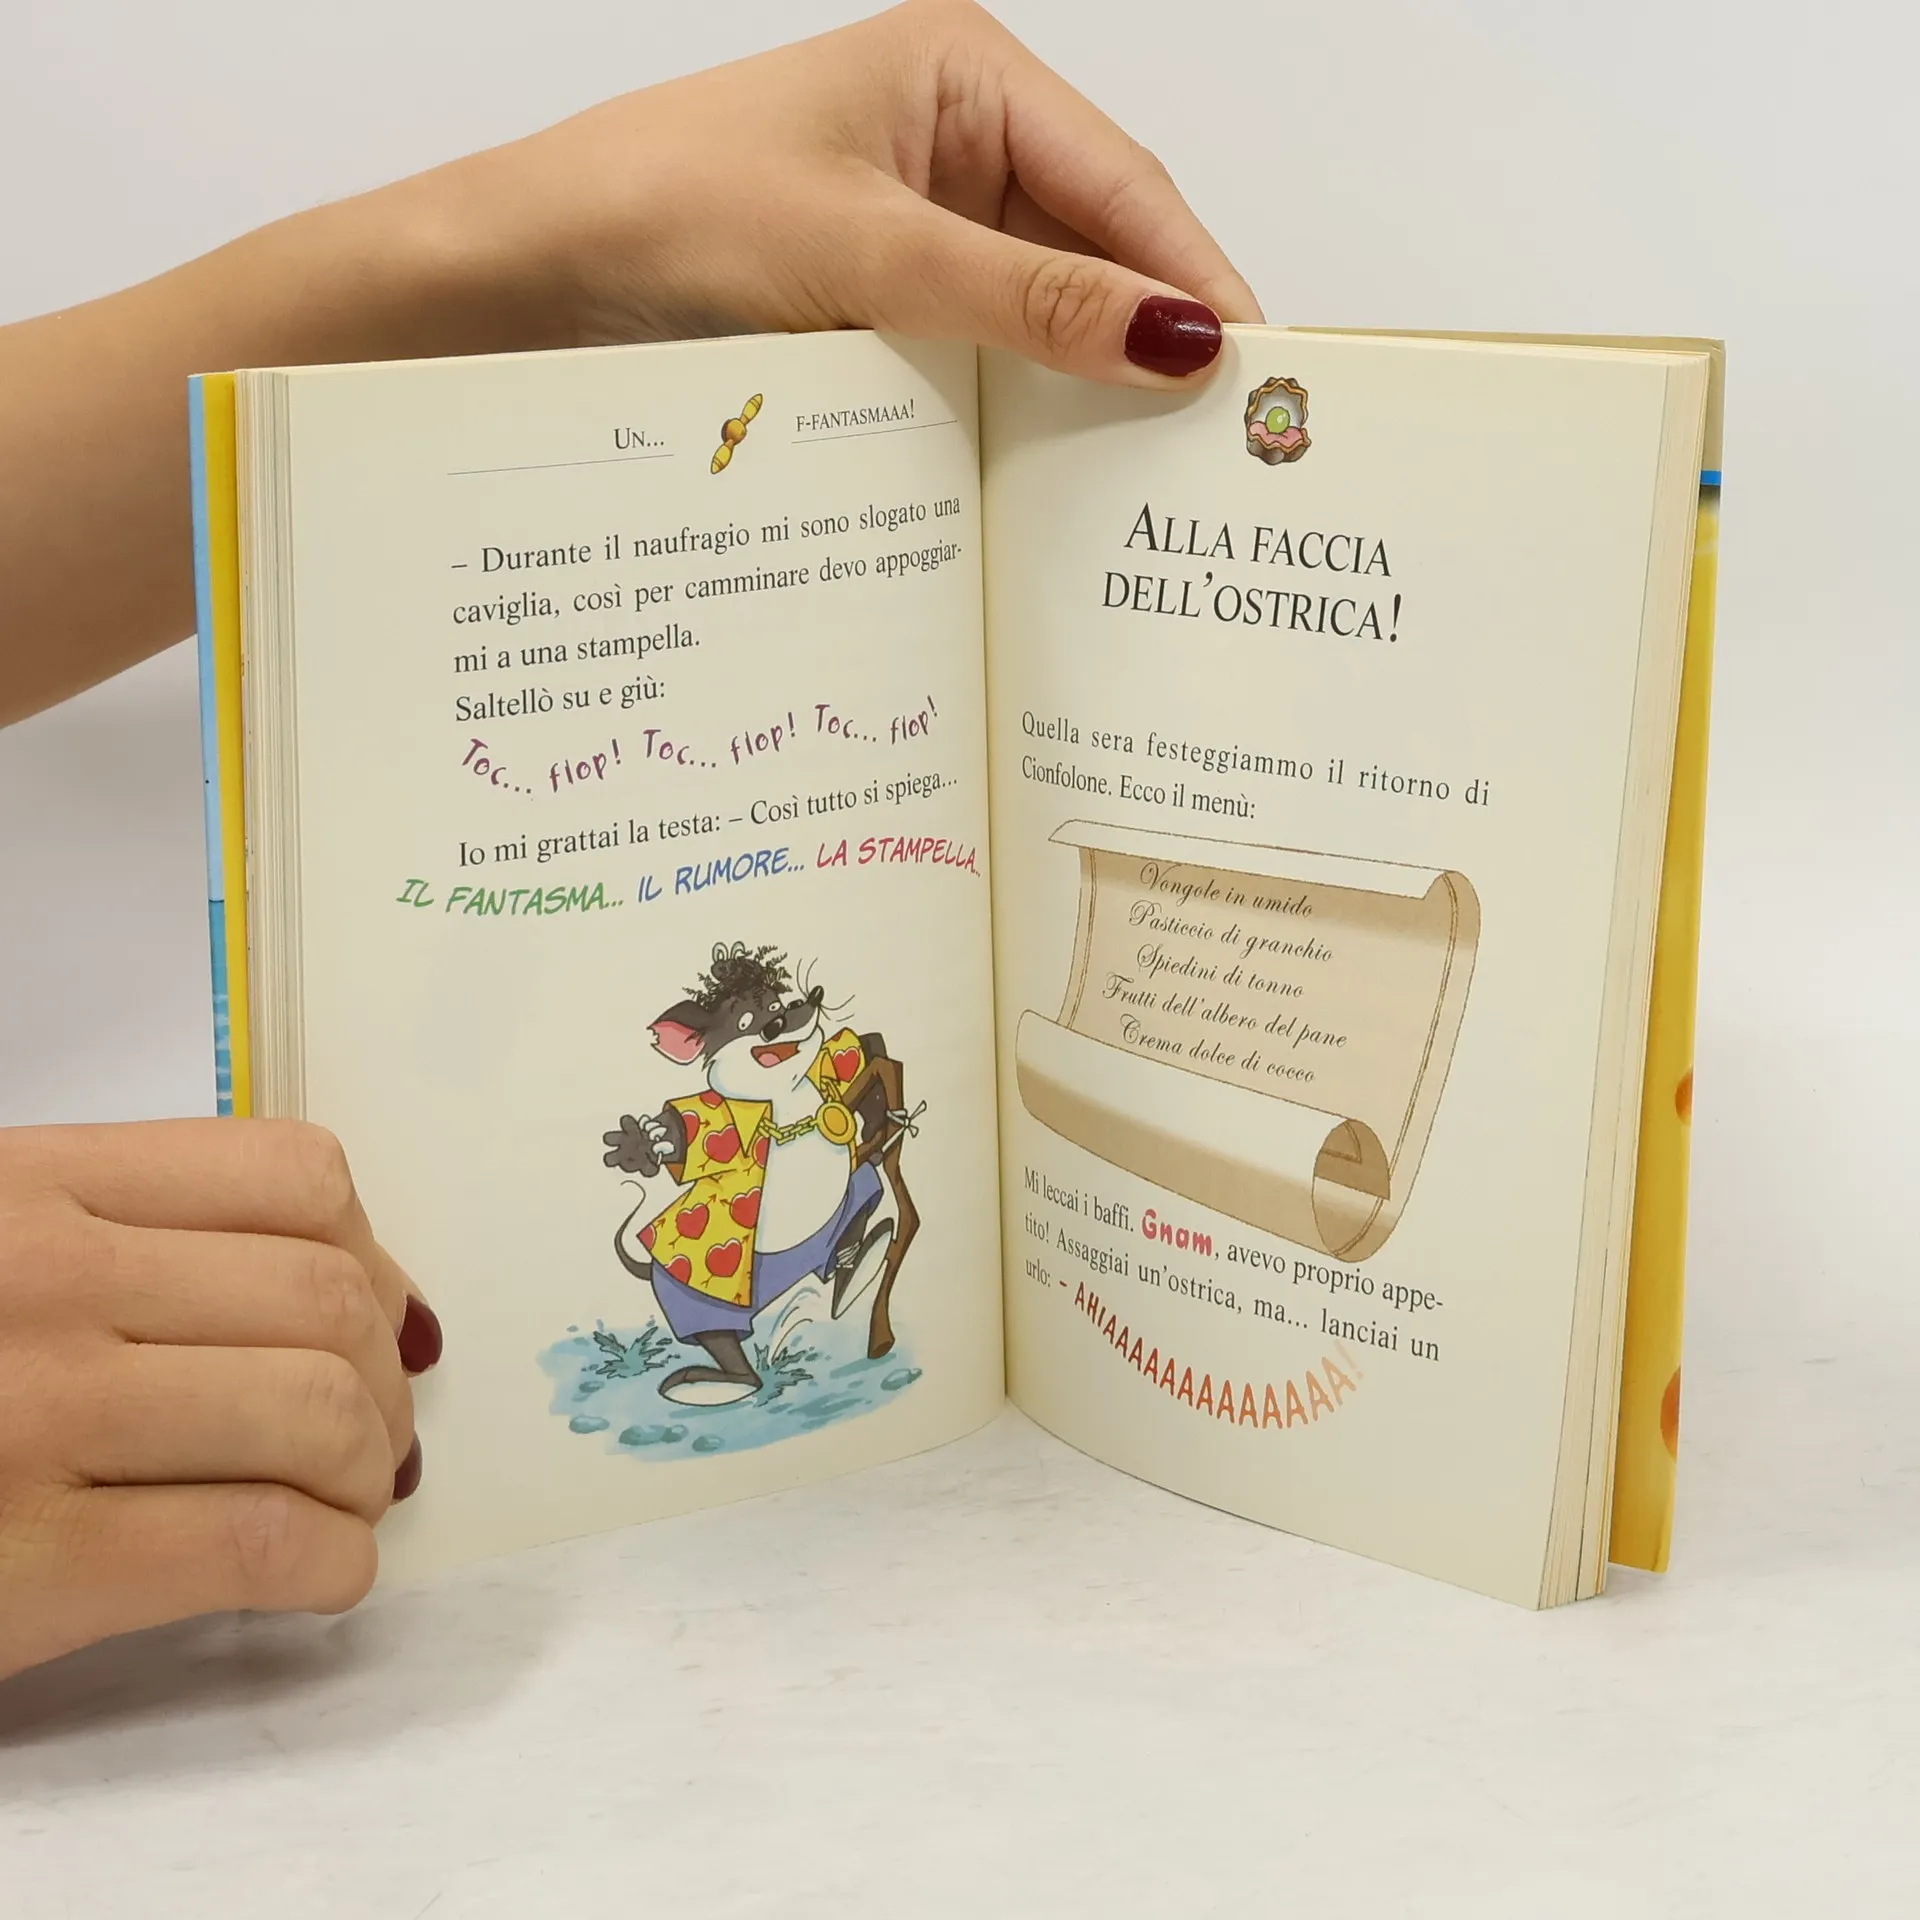 Un... F-FANTASMAAA!
– Durante il naufragio mi sono slogato una
caviglia, così per camminare devo appoggiar-
mi a una stampella.
Saltellò su e giù:
Toc... flop! Toc... flop! Toc... flop!
Io mi grattai la testa: – Così tutto si spiega...
IL FANTASMA... IL RUMORE... LA STAMPELLA...
ALLA FACCIA
DELL'OSTRICA!
Quella sera festeggiammo il ritorno di
Cionfolone. Ecco il menù:
Vongole in umido
Pasticcio di granchio
Spiedini di tonno
Frutti dell'albero del pane
Crema dolce di cocco
Mi leccai i baffi. Gnam, avevo proprio appe-
tito! Assaggiai un'ostrica, ma... lanciai un
urlo: – AHIAAAAAAAAAAAAAAA!